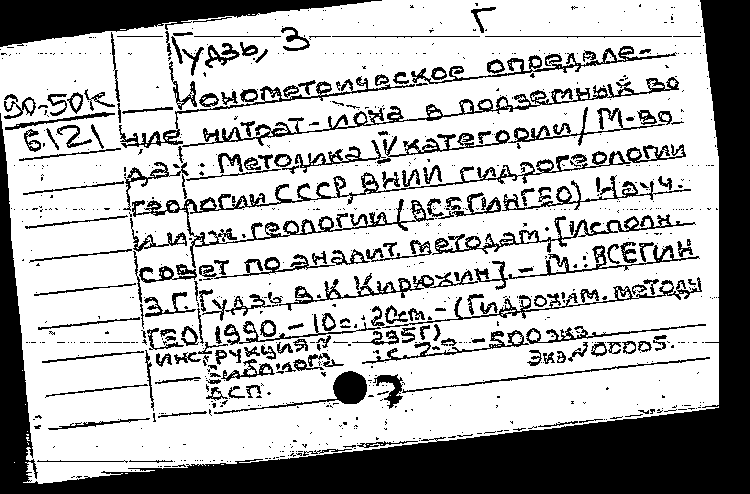 Г
Гудзь, З
90-50К
6121
Ионометрическое определе-
ние нитрат-иона в подземных во
дах: Методика IV категории / М-во
геологии СССР, ВНИИ гидрогеологии
и инж. геологии (ВСЕГИНГЕО). Науч.
совет по аналит. методам; [Исполн.
З.Г. Гудзь, В.К. Кирюхин]. - М.: ВСЕГИН
ГЕО, 1990. - 10с.; 20см. - (Гидрохим. методы
инструкция N 295Г)
Библиогр.: с. - 500 экз.
б.сп. Экз. N 00005.